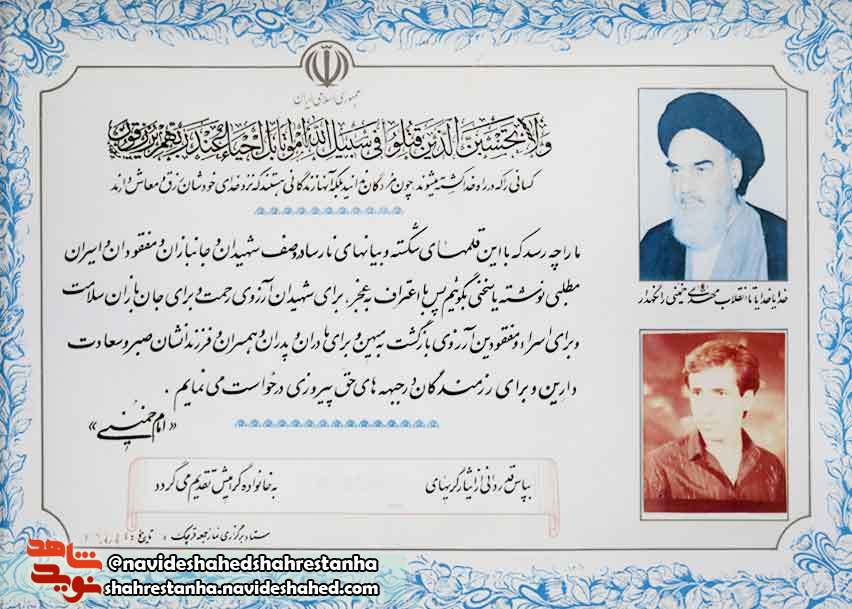 جمهوری اسلامی ایران
ولا تحسبن الذین قتلوا فی سبیل الله امواتا بل احیاء عند ربهم یرزقون
کسانی را که در راه خدا کشته میشوند چون مردگان ندانید بلکه آنها زندگانی هستند که نزد خدای خودشان رزق و معاش دارند
ما را چه رسد که با این قلمهای شکسته و بیانهای نارسا در وصف شهیدان و جانبازان و مفقودان و اسیران
مطلبی نوشته یا سخنی بگوئیم پس با اعتراف به عجز، برای شهیدان آرزوی رحمت و برای جان بازان سلامت
و برای اسراء و مفقودین آرزوی بازگشت به میهن و برای مادران و پدران و همسران و فرزندانشان صبر و سعادت
دارین و برای رزمندگان در جبهه های حق پیروزی درخواست می نمایم .
«امام خمینی»
خدایا خدایا تا انقلاب مهدی خمینی را نگهدار
بپاس قدردانی از ایثارگریهای
به خانواده گرامیش تقدیم می گردد
ستاد برگزاری نماز جمعه قرچک تاریخ
نوید شاهد
@navideshahedshahrestanha
shahrestanha.navideshahed.com